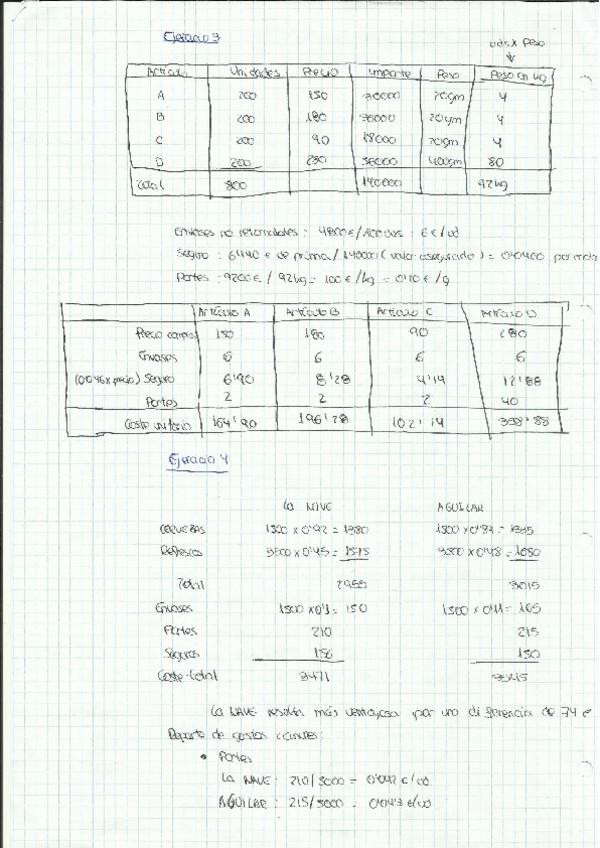 Ejercicio 3
uds x Peso
Artículo Unidades Precio Importe Peso Peso en kg
A 200 150 30000 20gm 4
B 200 180 36000 20gm 4
C 200 90 18000 20gm 4
D 200 280 56000 400gm 80
Total 800 140000 92kg
Envases no retornables : 4800€/800uds : 6€/ud
Seguro : 6440 € de prima/140000 (valor asegurado) = 0'0460 por
Portes : 9200€ / 92kg = 100€/kg = 0'10 €/g
Artículo A Artículo B Artículo C Artículo D
Precio compra 150 180 90 280
Envases 6 6 6 6
(0'046 x precio) Seguro 6'90 8'28 4'14 12'88
Portes 2 2 2 40
Coste unitario 164'90 196'28 102'14 338'88
Ejercicio 4
La NAVE AGUILAR
CERVEZAS 1500 x 0'92 = 1380
Refrescos 3500 x 0'45 = 1575 3500 x 0'48 = 1680
Total 2955 3015
Envases 1500 x 0'1 = 150 1500 x 0'11 = 165
Portes 210 215
Seguros 156 150
Coste total 3471 3545
La NAVE resulta más ventajosa por una diferencia de 74 €
Reparto de gastos comunes:
• Portes
La NAVE : 210/5000 = 0'042 €/ud
AGUILAR : 215/5000 = 0'043 €/ud